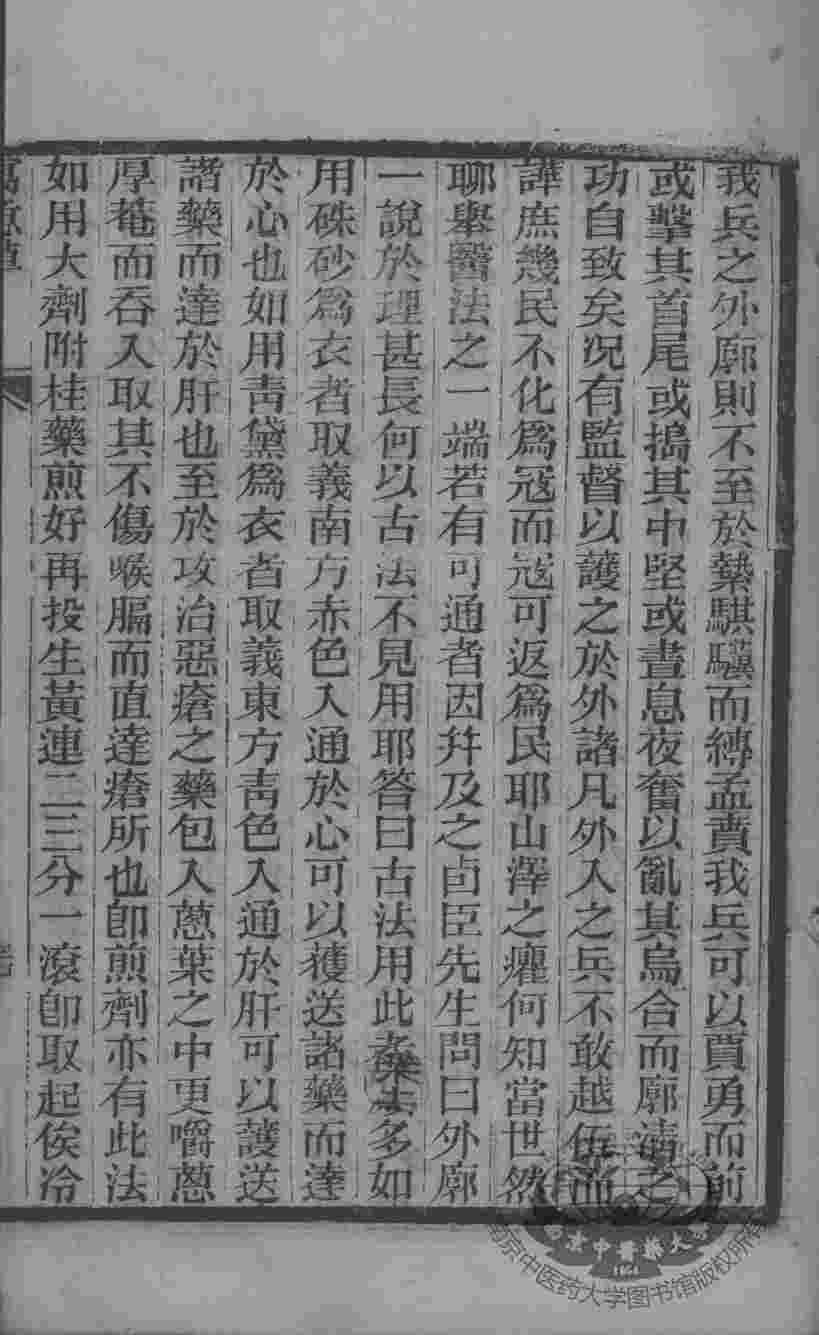 我兵之外廓則不至於縶騏驥而縛孟賁我兵可以賈勇而前
或擊其首尾或搗其中堅或晝息夜奮以亂其烏合而廓清之
功自致矣况有監督以護之於外諸凡外入之兵不敢越伍而
譁庶幾民不化爲冦而冦可返爲民耶山澤之癯何知當世然
聊舉醫法之一端若有可通者因幷及之卣臣先生問曰外廓
一說於理甚長何以古法不見用耶答曰古法用此者多如
用硃砂爲衣者取義南方赤色入通於心可以護送諸藥而達
於心也如用靑黛爲衣者取義東方靑色入通於肝可以護送
諸藥而達於肝也至於攻治惡瘡之藥包入蔥葉之中更嚼蔥
厚菴而吞入取其不傷喉膈而直達瘡所也卽煎劑亦有此法
如用大劑附桂藥煎好再投生黃連二三分一滾卽取起俟冷
寓意草
南京中醫藥大學
1954
南京中医药大学图书馆版权所有